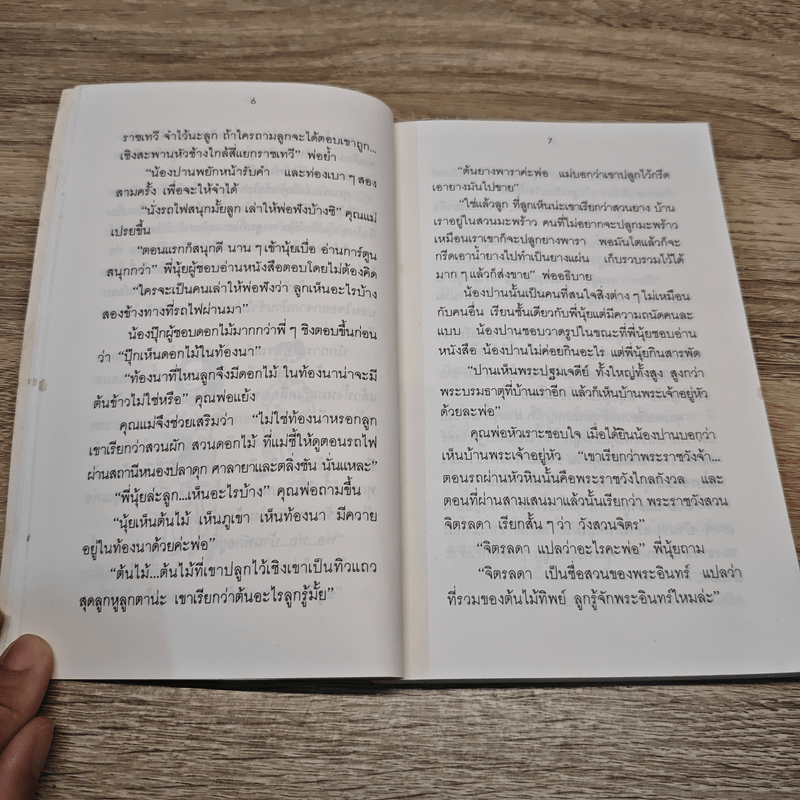 6
ราชเทวี จำไว้นะลูก ถ้าใครถามลูกจะได้ตอบเขาถูก...
เชิงสะพานหัวช้างใกล้สี่แยกราชเทวี” พ่อย้ำ
“น้องปานพยักหน้ารับคำ และท่องเบา ๆ สอง
สามครั้ง เพื่อจะให้จำได้
“นั่งรถไฟสนุกมั้ยลูก เล่าให้พ่อฟังบ้างซิ” คุณแม่
เปรยขึ้น
“ตอนแรกก็สนุกดี นาน ๆ เข้านุ้ยเบื่อ อ่านการ์ตูน
สนุกกว่า” พี่นุ้ยผู้ชอบอ่านหนังสือตอบโดยไม่ต้องคิด
“ใครจะเป็นคนเล่าให้พ่อฟังว่า ลูกเห็นอะไรบ้าง
สองข้างทางที่รถไฟผ่านมา”
น้องปุ๊กผู้ชอบดอกไม้มากกว่าพี่ ๆ ชิงตอบขึ้นก่อน
ว่า “ปุ๊กเห็นดอกไม้ในท้องนา”
“ท้องนาที่ไหนลูกจึงมีดอกไม้ ในท้องนาน่าจะมี
ต้นข้าวไม่ใช่หรือ” คุณพ่อแย้ง
คุณแม่จึงช่วยเสริมว่า “ไม่ใช่ท้องนาหรอกลูก
เขาเรียกว่าสวนผัก สวนดอกไม้ ที่แม่ชี้ให้ดูตอนรถไฟ
ผ่านสถานีหนองปลาดุก ศาลายาและตลิ่งชัน นั่นแหละ”
“พี่นุ้ยล่ะลูก...เห็นอะไรบ้าง” คุณพ่อถามขึ้น
“นุ้ยเห็นต้นไม้ เห็นภูเขา เห็นท้องนา มีควาย
อยู่ในท้องนาด้วยค่ะพ่อ”
“ต้นไม้...ต้นไม้ที่เขาปลูกไว้เชิงเขาเป็นทิวแถว
สุดลูกหูลูกตาน่ะ เขาเรียกว่าต้นอะไรลูกรู้มั้ย”
7
“ต้นยางพาราค่ะพ่อ แม่บอกว่าเขาปลูกไว้กรีด
เอายางมันไปขาย”
“ใช่แล้วลูก ที่ลูกเห็นน่ะเขาเรียกว่าสวนยาง บ้าน
เราอยู่ในสวนมะพร้าว คนที่ไม่อยากจะปลูกมะพร้าว
เหมือนเราเขาก็จะปลูกยางพารา พอมันโตแล้วก็จะ
กรีดเอาน้ำยางไปทำเป็นยางแผ่น เก็บรวบรวมไว้ได้
มาก ๆ แล้วก็ส่งขาย” พ่ออธิบาย
น้องปานนั้นเป็นคนที่สนใจสิ่งต่าง ๆ ไม่เหมือน
กับคนอื่น เรียนชั้นเดียวกับพี่นุ้ยแต่มีความถนัดคนละ
แบบ น้องปานชอบวาดรูปในขณะที่พี่นุ้ยชอบอ่าน
หนังสือ น้องปานไม่ค่อยกินอะไร แต่พี่นุ้ยกินสารพัด
“ปานเห็นพระปฐมเจดีย์ ทั้งใหญ่ทั้งสูง สูงกว่า
พระบรมธาตุที่บ้านเราอีก แล้วก็เห็นบ้านพระเจ้าอยู่หัว
ด้วยละพ่อ”
คุณพ่อหัวเราะชอบใจ เมื่อได้ยินน้องปานบอกว่า
เห็นบ้านพระเจ้าอยู่หัว “เขาเรียกว่าพระราชวังจ้า...
ตอนรถผ่านหัวหินนั้นคือพระราชวังไกลกังวล และ
ตอนที่ผ่านสามเสนมาแล้วนั้นเรียกว่า พระราชวังสวน
จิตรลดา เรียกสั้น ๆ ว่า วังสวนจิตร”
“จิตรลดา แปลว่าอะไรคะพ่อ” พี่นุ้ยถาม
“จิตรลดา เป็นชื่อสวนของพระอินทร์ แปลว่า
ที่รวมของต้นไม้ทิพย์ ลูกรู้จักพระอินทร์ไหมล่ะ”